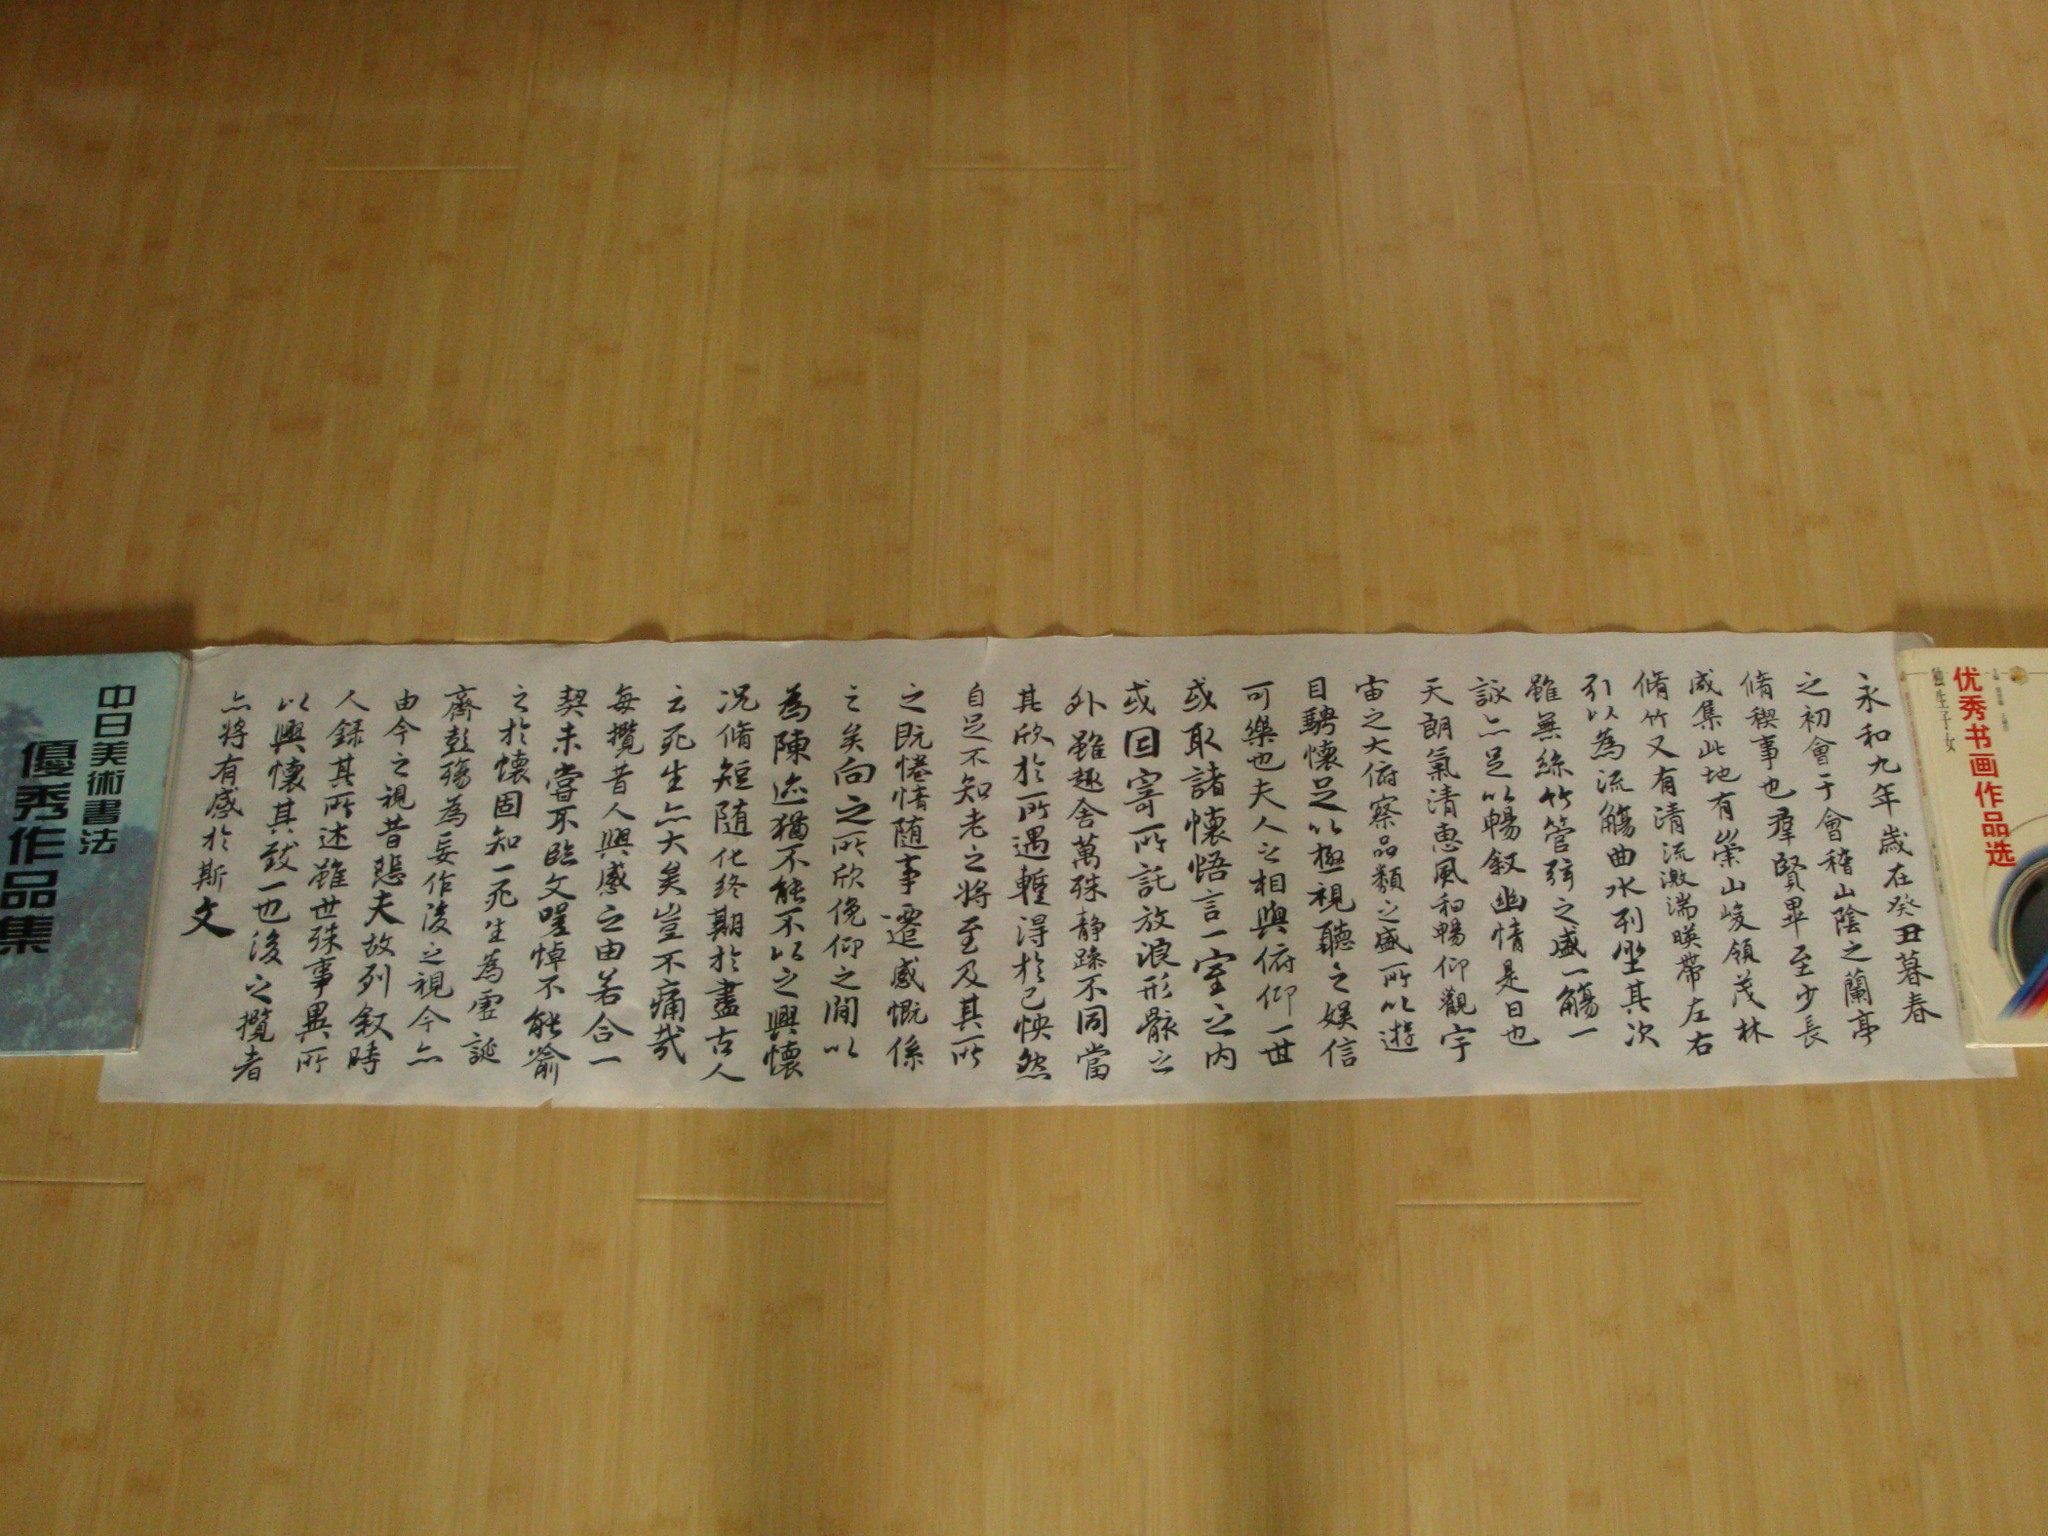 永和九年歲在癸丑暮春
之初會于會稽山陰之蘭亭
脩稧事也羣賢畢至少長
咸集此地有崇山峻領茂林
脩竹又有清流激湍暎帶左右
引以為流觴曲水列坐其次
雖無絲竹管弦之盛一觴一
詠亦足以暢叙幽情是日也
天朗氣清惠風和暢仰觀宇
宙之大俯察品類之盛所以遊
目騁懷足以極視聽之娛信
可樂也夫人之相與俯仰一世
或取諸懷悟言一室之內
或因寄所託放浪形骸之
外雖趣舍萬殊静躁不同當
其欣於所遇蹔得於己怏然
自足不知老之將至及其所
之既惓情隨事遷感慨係
之矣向之所欣俛仰之閒以
為陳迹猶不能不以之興懷
況脩短隨化終期於盡古人
云死生亦大矣豈不痛哉
每攬昔人興感之由若合一
契未嘗不臨文嗟悼不能喻
之於懷固知一死生為虛誕
齊彭殤為妄作後之視今亦
由今之視昔悲夫故列叙時
人録其所述雖世殊事異所
以興懷其致一也後之攬者
亦將有感於斯文
中日美術書法
優秀作品集
独生子女
优秀书画作品选